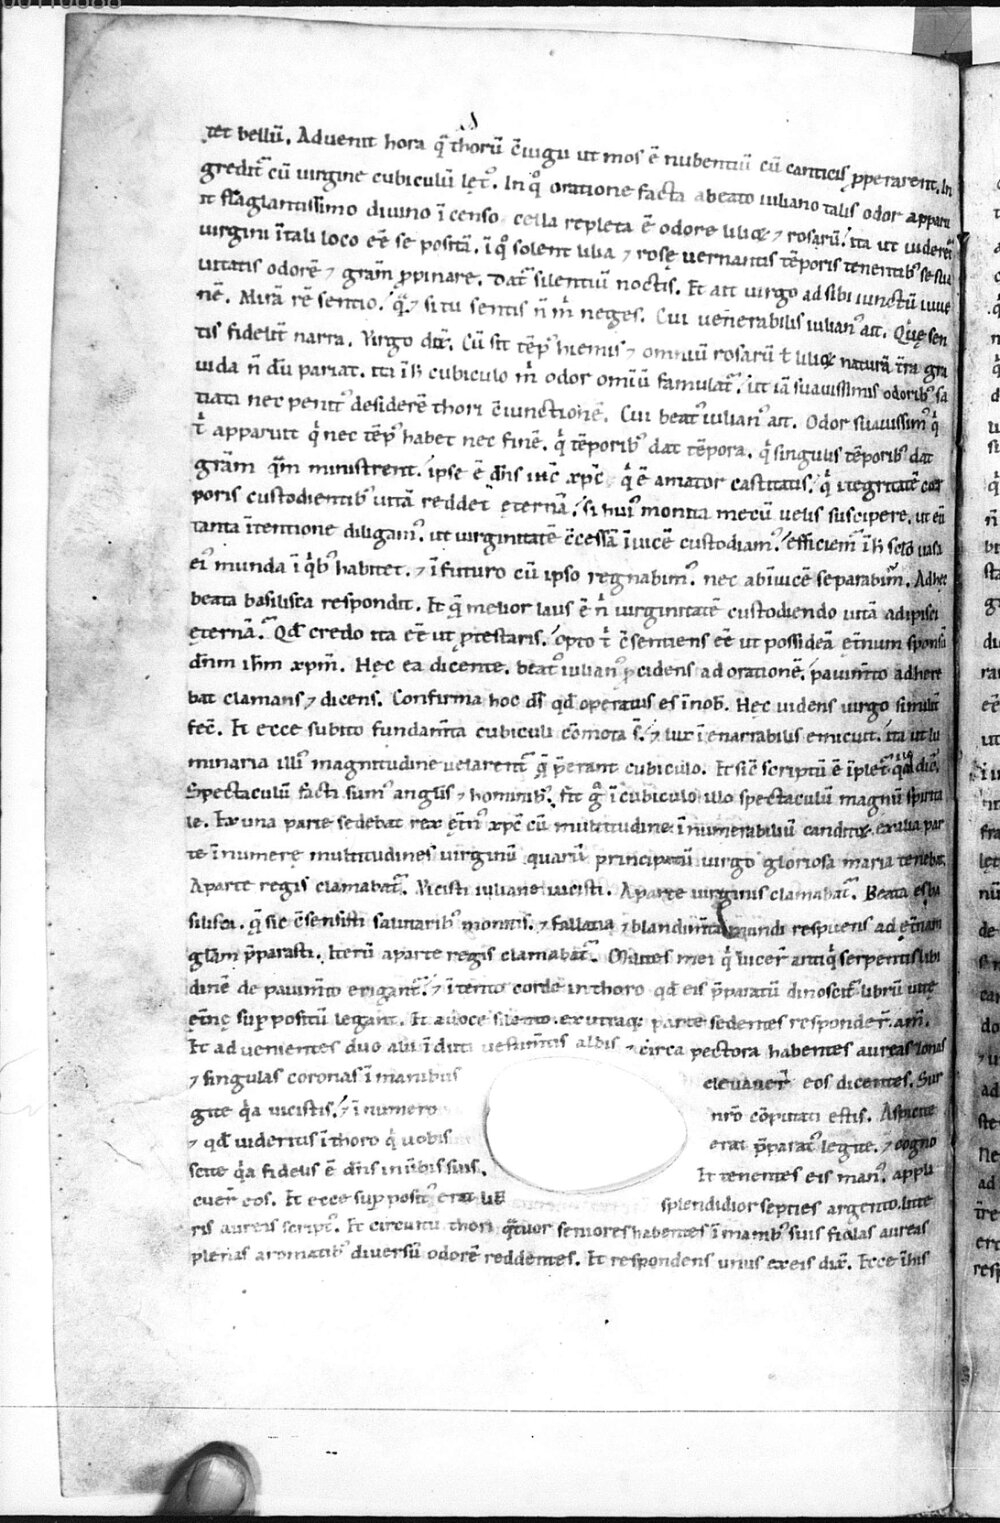 tet bellū. Advenit hora q̄ thorū c̄iugii ut mos ē nubentiū cū canticis ꝓperarent. In
gredit᷑ cū virgine cubiculū lęt᷒. In q̊ oratione facta abeato iuliano talis odor apparu
it flaglantissimo divino īcenso cella repleta ē odore lilioꝝ ⁊ rosarū. ita ut viderēt᷑
virgini ītali loco eē̄ se positā. ī q̊ solent lilia ⁊ rosę vernantis tēporis tenentib᷒ se sua
vitatis odorē ⁊ gr̄am ꝓpinare. Dat᷑ silentiū noctis. Et ait virgo ad sibi iunctū iuve
nē. Mirā rē sentio. q̄ ⁊ si tu sentis n̄ m̄ neges. Cui venerabilis iulian᷒ ait. Quę sen
tis fidelit̄ narra. Virgo dix̄. Cū sit tēp᷒ hiemis ⁊ omniū rosarū ł lilioꝝ naturā t̄ra gra
vida n̄ dū pariat. ita ī h̄ cubiculo m̄ odor omiū famulat᷑. ut iā suavissimis odorib᷒ sa
tiata nec penit᷒ desiderē thori c̄iunctionē. Cui beat᷒ iulian᷒ ait. Odor suavissim᷒ q̇
t̄ apparuit q̇ nec tēp᷒ habet nec finē. q̇ tēporib᷒ dat tēpora. q̇ singulis tēporib᷒ dat
gr̄am q̄m ministrent. ipse ē dn̄s ihc̄ xpc̄ q̇ ē amator castitatis. q̇ ītegritatē cor
poris custodientib᷒ vitā reddet ęternā. si hui᷒ monita mecū velis suscipere. ut eū
tanta ītentione diligam᷒. ut virginitatē c̄cessā īvicē custodiam᷒. efficiem᷒ ī h̄ sclo vasa
ei᷒ munda ī q̇b᷒ habitet. ⁊ ī futuro cū ipso regnabim᷒. nec abīvicē separabim᷒. Adhęc
beata basilisca respondit. Et q̄ melior laus ē n̄ virginitatē custodiendo vitā adipisci
ęternā. Qd̄ credo ita eē̄ ut ꝓtestaris. opto t̄ c̄sentiens eē̄ ut possideā et̄num sponsū
dn̄m ihm̄ xpm̄. Hęc ea dicente. beat᷒ iulian᷒ p̄cidens ad orationē. pavim̄to adhere
bat clamans ⁊ dicens. Confirma hoc ds̄ qd̄ operatus es ī nob̄. Hęc videns virgo similit̄
fec̄. Et ecce subito fundam̄ta cubiculi cōmota s̄. ⁊ lux īenarrabilis emicuit. ita ut lu
minaria illi᷒ magnitudine velarent᷑ q̄ p̄erant cubiculo. Et sic̄ scriptū ē īplet᷒
Spectaculū facti sum᷒ anglis ⁊ hominib᷒. fit g̊ ī cubiculo illo spectaculū magnū spirita
le. Ex una parte sedebat rex et̄n᷒ xpc̄ cū multitudine īnumerabiliū canditoꝝ. ex alia par
te īnumerę multitudines virginū quarū principatū virgo gloriosa maria tenebat.
A parte regis clamabat᷑. Vicisti iuliane vicisti. A parte virginis clamabat᷑. Beata es ba
silisca. q̄ sic c̄sensisti salutarib᷒ monitis. ⁊ fallatia ⁊ blandim̄ta mundi respuens ad et̄nam
gl̄am p̄parasti. Iterū a parte regis clamabat᷑. Milites mei q̇ vicer̄ antiq̇ serpentis libi
dinē de pavim̄to erigant᷑. ⁊ ītento corde in thoro qd̄ eis p̄paratū dinoscit᷑ librū vitę
et̄nę suꝑpositū legant. Et avoce silentio. ex utraqꝫ parte sedentes responder̄ am̄.
Et advenientes duo albi īduti vestim̄tis albis ⁊ circa pectora habentes aureas zonas
⁊ singulas coronas ī manibus elevaver̄ eos dicentes. Sur
gite q̇a vicistis. ⁊ ī numero nr̄o cōputati estis. Aspicite
⁊ qd̄ videritis ī thoro q̇ vobis erat p̄parat᷒ legite. ⁊ cogno
scite q̇a fidelis ē dn̄s in ūbis suis. Et tenentes eis man᷒. appli
cuer̄ eos. Et ecce suꝑposit᷒ erat splendidior septies argento. litte
ris aureis script᷒. Et circuitu thori q̄tuor seniores habentes ī manib᷒ suis fiolas aureas
plenas aromatib᷒ diversū odorē reddentes. Et respondens unus ex eis dix̄. Ecce ī his